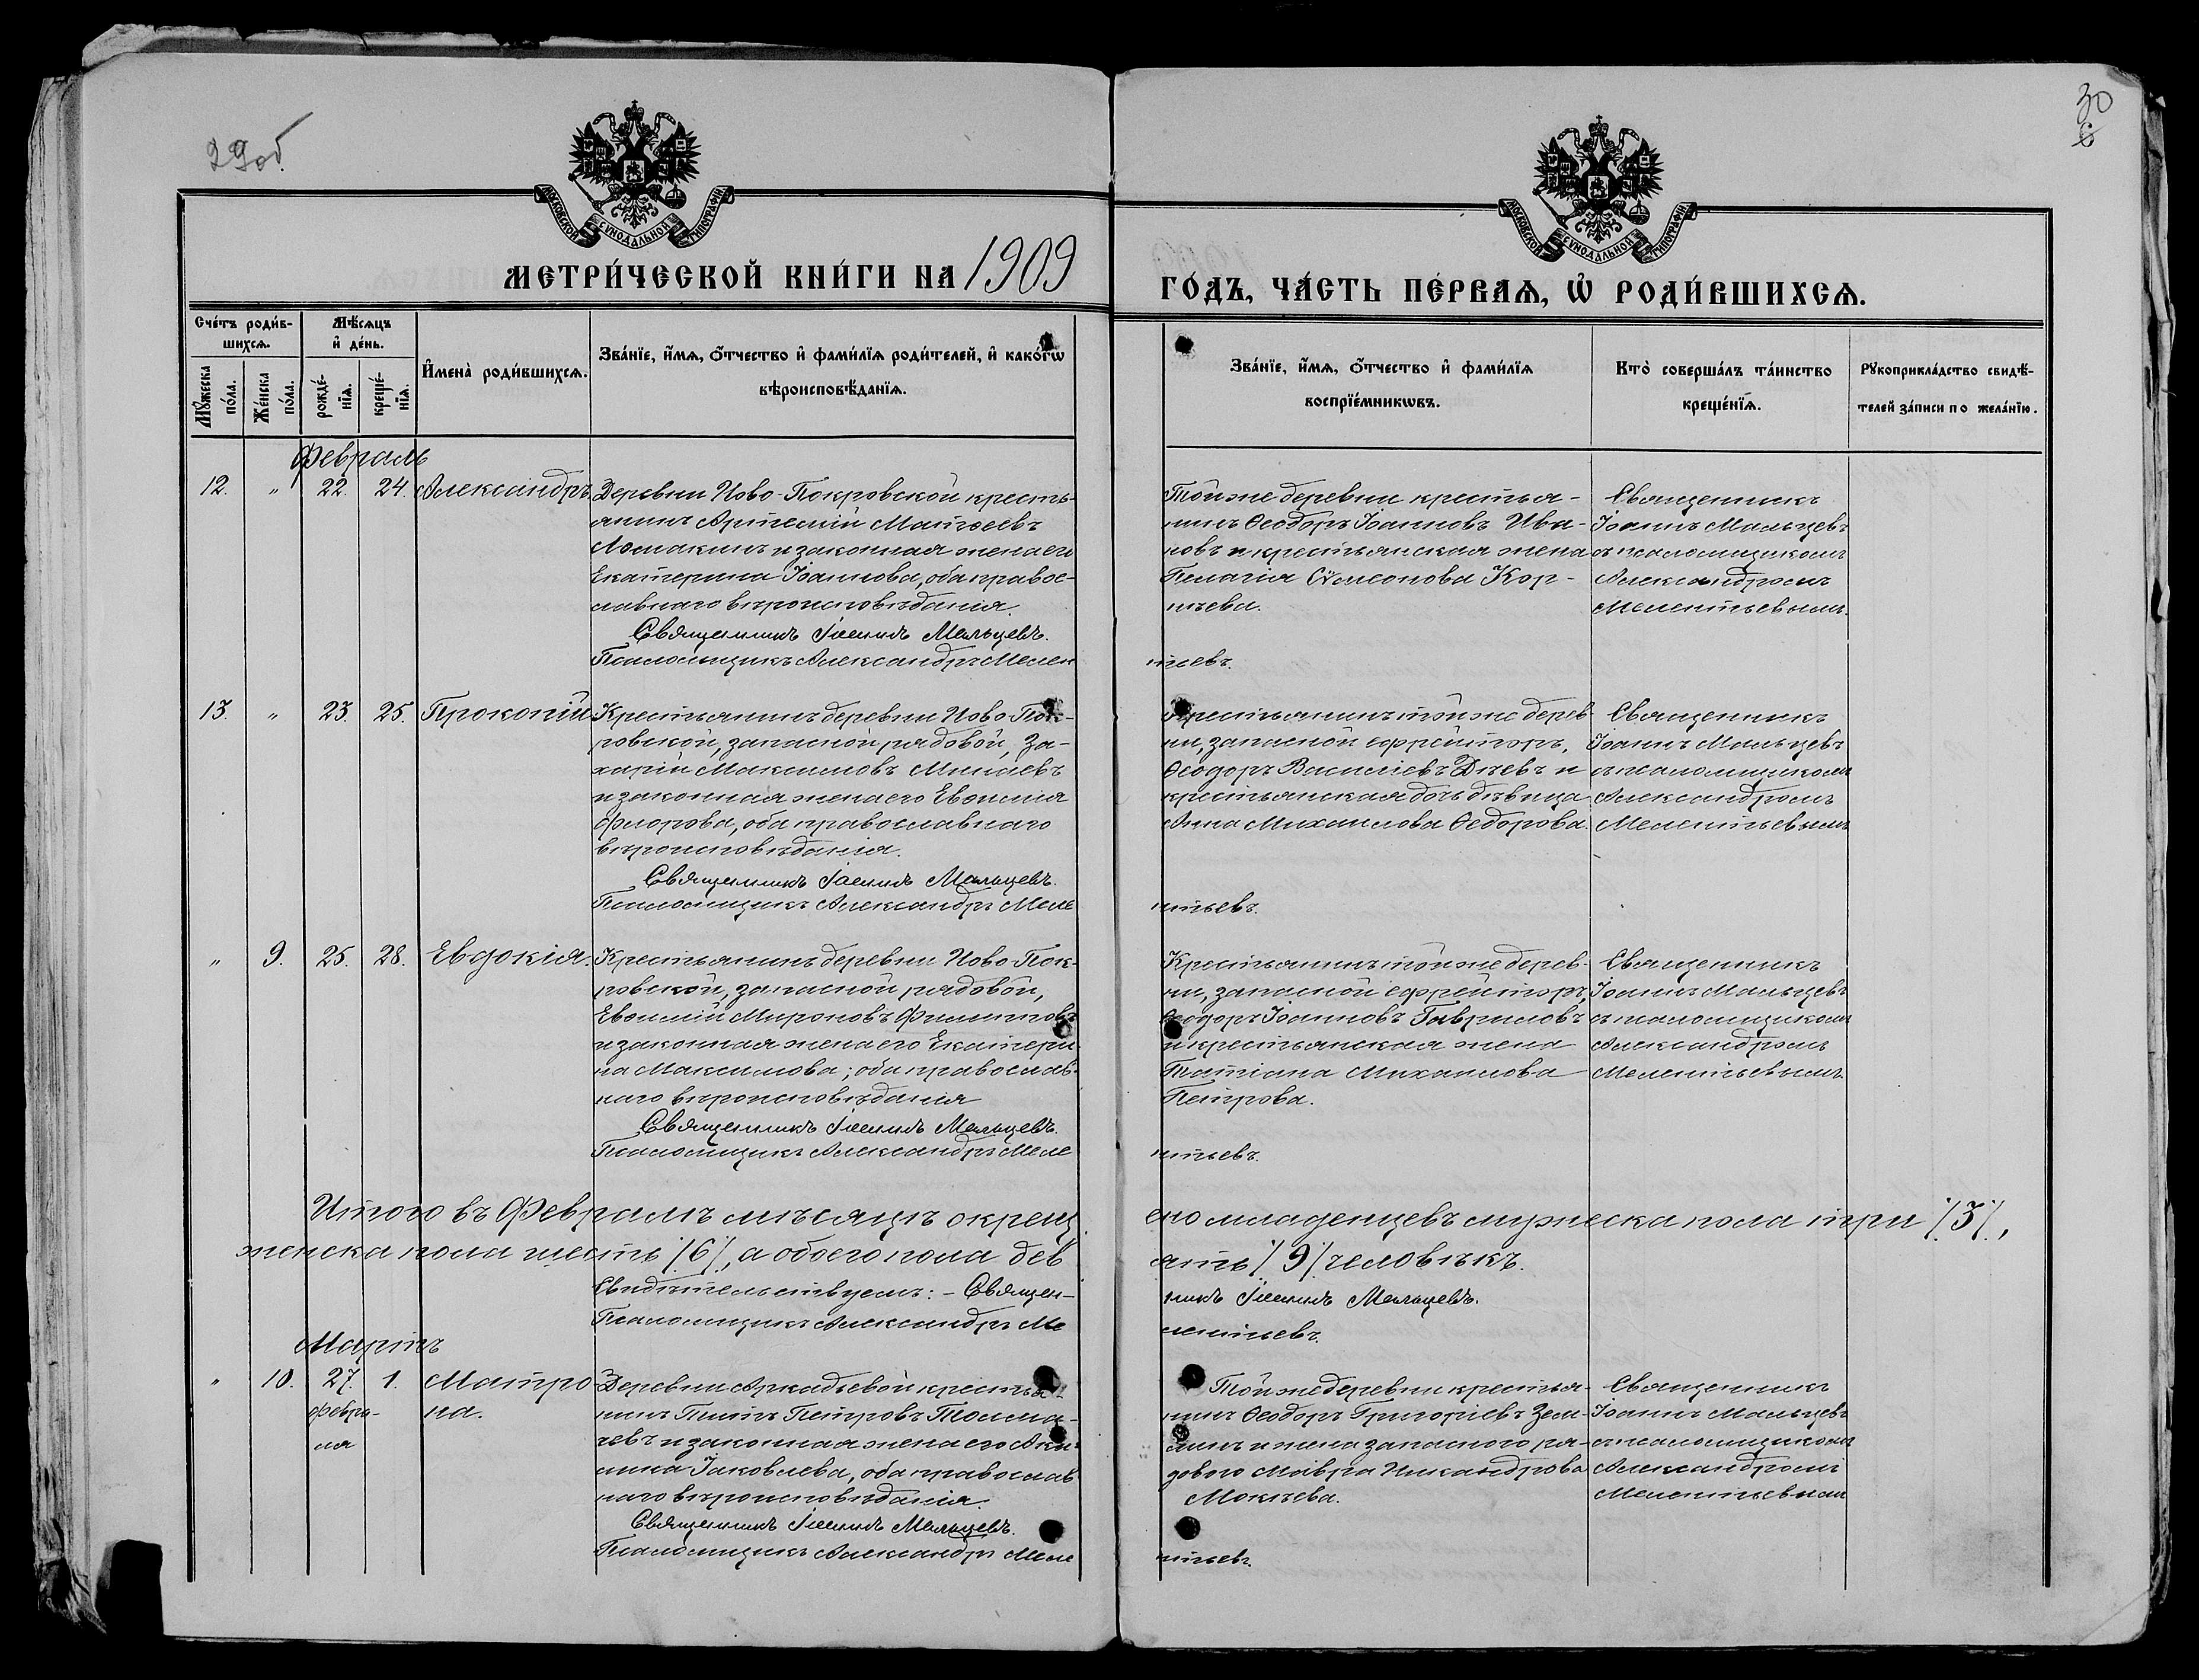 29об.
30
6
МОСКОВСКОЙ СѴНОДАЛЬНОЙ ТИПОГРАФІИ
МОСКОВСКОЙ СѴНОДАЛЬНОЙ ТИПОГРАФІИ
МЕТРИ́ЧЕСКОЙ КНИ́ГИ НА 1909
ГО́ДЪ, ЧА́СТЬ ПЕ́РВАѦ, Ѡ҆ РОДИ́ВШИХСѦ.
Сче́тъ роди́в-
шихсѧ.
Мꙋ́жеска по́ла.
Же́нска по́ла.
Мѣ́сѧцъ
и҆ де́нь.
рожде́-
нїѧ.
креще́-
нїѧ.
И҆мена̀ роди́вшихсѧ.
Зва́нїе, и҆́мѧ, ѻ҆́тчество и҆ фами́лїѧ роди́телей, и҆ како́гѡ
вѣроисповѣ́данїѧ.
Зва́нїе, и҆́мѧ, ѻ҆́тчество и҆ фами́лїѧ
воспрїе́мникѡвъ.
Кто̀ соверша́лъ та́инство
креще́нїѧ.
Рꙋкоприкла́дство свидѣ́-
телей за́писи по жела́нїю.
Февраль
12. " 22. 24. Александръ.
Деревни Ново-Покровской кресть-
янинъ Артемій Матѳеевъ
Ломакинъ и законная жена его
Екатерина Іоаннова, оба правос-
лавнаго вѣроисповѣданія.
Священникъ Іоаннъ Мальцевъ.
Псаломщикъ Александръ Мелен
тьевъ.
Той же деревни крестья-
нинъ Ѳеодоръ Іоанновъ Ива-
новъ и крестьянская жена
Пелагія Сѵмеонова Кор-
нѣева.
Священникъ
Іоаннъ Мальцевъ
съ псаломщикомъ
Александромъ
Мелентьевымъ.
13. " 23. 25. Прокопій
Крестьянинъ деревни Ново-Пок-
ровской, запасной рядовой, За-
харій Максимовъ Минаевъ
и законная жена его Евѳимія
Флорова, оба православнаго
вѣроисповѣданія.
Священникъ Іоаннъ Мальцевъ.
Псаломщикъ Александръ Меле
нтьевъ.
Крестьянинъ той же дерев-
ни, запасной ефрейторъ,
Ѳеодоръ Василіевъ Дѣевъ и
крестьянская дочь дѣвица
Анна Михаилова Ѳедорова.
Священникъ
Іоаннъ Мальцевъ
съ псаломщикомъ
Александромъ
Мелентьевымъ
" 9. 25. 28. Евдокія.
Крестьянинъ деревни Ново-Пок-
ровской, запасной рядовой,
Евѳимій Мироновъ Филиповъ
и законная жена его Екатери-
на Максимова; оба православ-
наго вѣроисповѣданія
Священникъ Іоаннъ Мальцевъ.
Псаломщикъ Александръ Меле
нтьевъ.
Крестьянинъ той же дерев-
ни, запасной ефрейторъ,
Ѳеодоръ Іоанновъ Гавриловъ
и крестьянская жена
Татіана Михаилова
Петрова.
Священникъ
Іоаннъ Мальцевъ
съ псаломщикомъ
Александромъ
Мелентьевымъ.
Итого въ Февралѣ мѣсяцѣ окрещ
ено младенцевъ мужеска пола три /3/,
женска пола шесть /6/, а обоего пола дев
ять /9/ человѣкъ.
Свидѣтельствуемъ: - Священ-
никъ Іоаннъ Мальцевъ.
Псаломщикъ Александръ Ме
лентьевъ.
Мартъ
" 10. 27. 1. Матро-
Февра- на.
ля
Деревни Аркадьевой крестья-
нинъ Титъ Петровъ Толма-
чевъ и законная жена его Аки-
лина Іаковлева, оба православ-
наго вѣроисповѣданія.
Священникъ Іоаннъ Мальцевъ.
Псаломщикъ Александръ Меле
нтьевъ.
Той же деревни крестья-
нинъ Ѳеодоръ Григоріевъ Зем-
линъ и жена запасного ря-
дового Мавра Никандрова
Мокѣева.
Священникъ
Іоаннъ Мальцевъ
съ псаломщикомъ
Александромъ
Мелентьевымъ